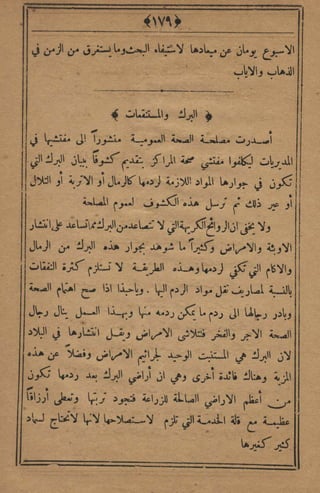 ﴿١٧٩﴾
الاسبوع يومان عن ميعادها لاستيفاء البحث وما يستغرق من الزمن في
الذهاب والاياب
﴿ البرك والمستنقعات ﴾
أصدرت مصلحة الصحة العمومية منشوراً الى مفتشيها في
المديريات ليكلفوا مفتشي صحة المراكز بتقديم كشوفاً ببيان البرك التي
تكون في جوارها المواد اللازمة لردمها كالرمال أو الاتربة أو التلال
أو غير ذلك ثم ترسل هذه الكشوف لعموم المصلحة
ولا يخفى ان الروائح الكريهة التي لا تتصاعد من البرك مما تساعد على انتشار
الاوبئة والامراض وكثيراً ما شوهد بجوار هذه البرك من الرمال
والاكام التي تكفي لردمها وهذه الطريقة لا تستلزم كثرة النفقات
بالنسبة لمصاريف نقل مواد الردم اليها . وياحبذا اذا صح اهتمام الصحة
وبادر رجالها الى ردم ما يمكن ردمه منها وبهذا العمل ينال رجال
الصحة الاجر والفخر فتتلاشى الامراض ويقل انتشارها في البلاد
لان البرك هي المستنبت الوحيد لجراثيم الامراض وفضلاً عن هذه
المزية وهناك فائدة أخرى وهي ان أراضي البرك بعد ردمها تكون
من أعظم الاراضي الصالحة للزراعة فتجود تربتها وتعطي أرزاقاً
عظيمة مع قلة الخدمة التي تلزم لاستصلاحها لانها لا تحتاج لسماد
كثير كغيرها